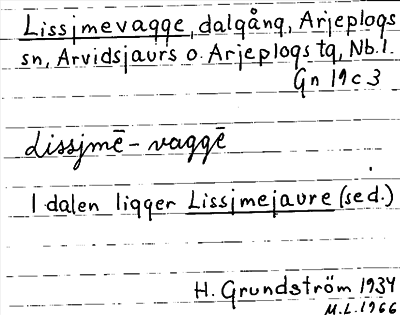 Lissjmevagge, dalgång, Arjeplogs
sn, Arvidsjaurs o. Arjeplogs tg, Nb.l.
Gn 19 c 3
Lissjmē-vaggē
I dalen ligger Lissjmejaure (se d.)
H. Grundström 1934
M.L. 1966